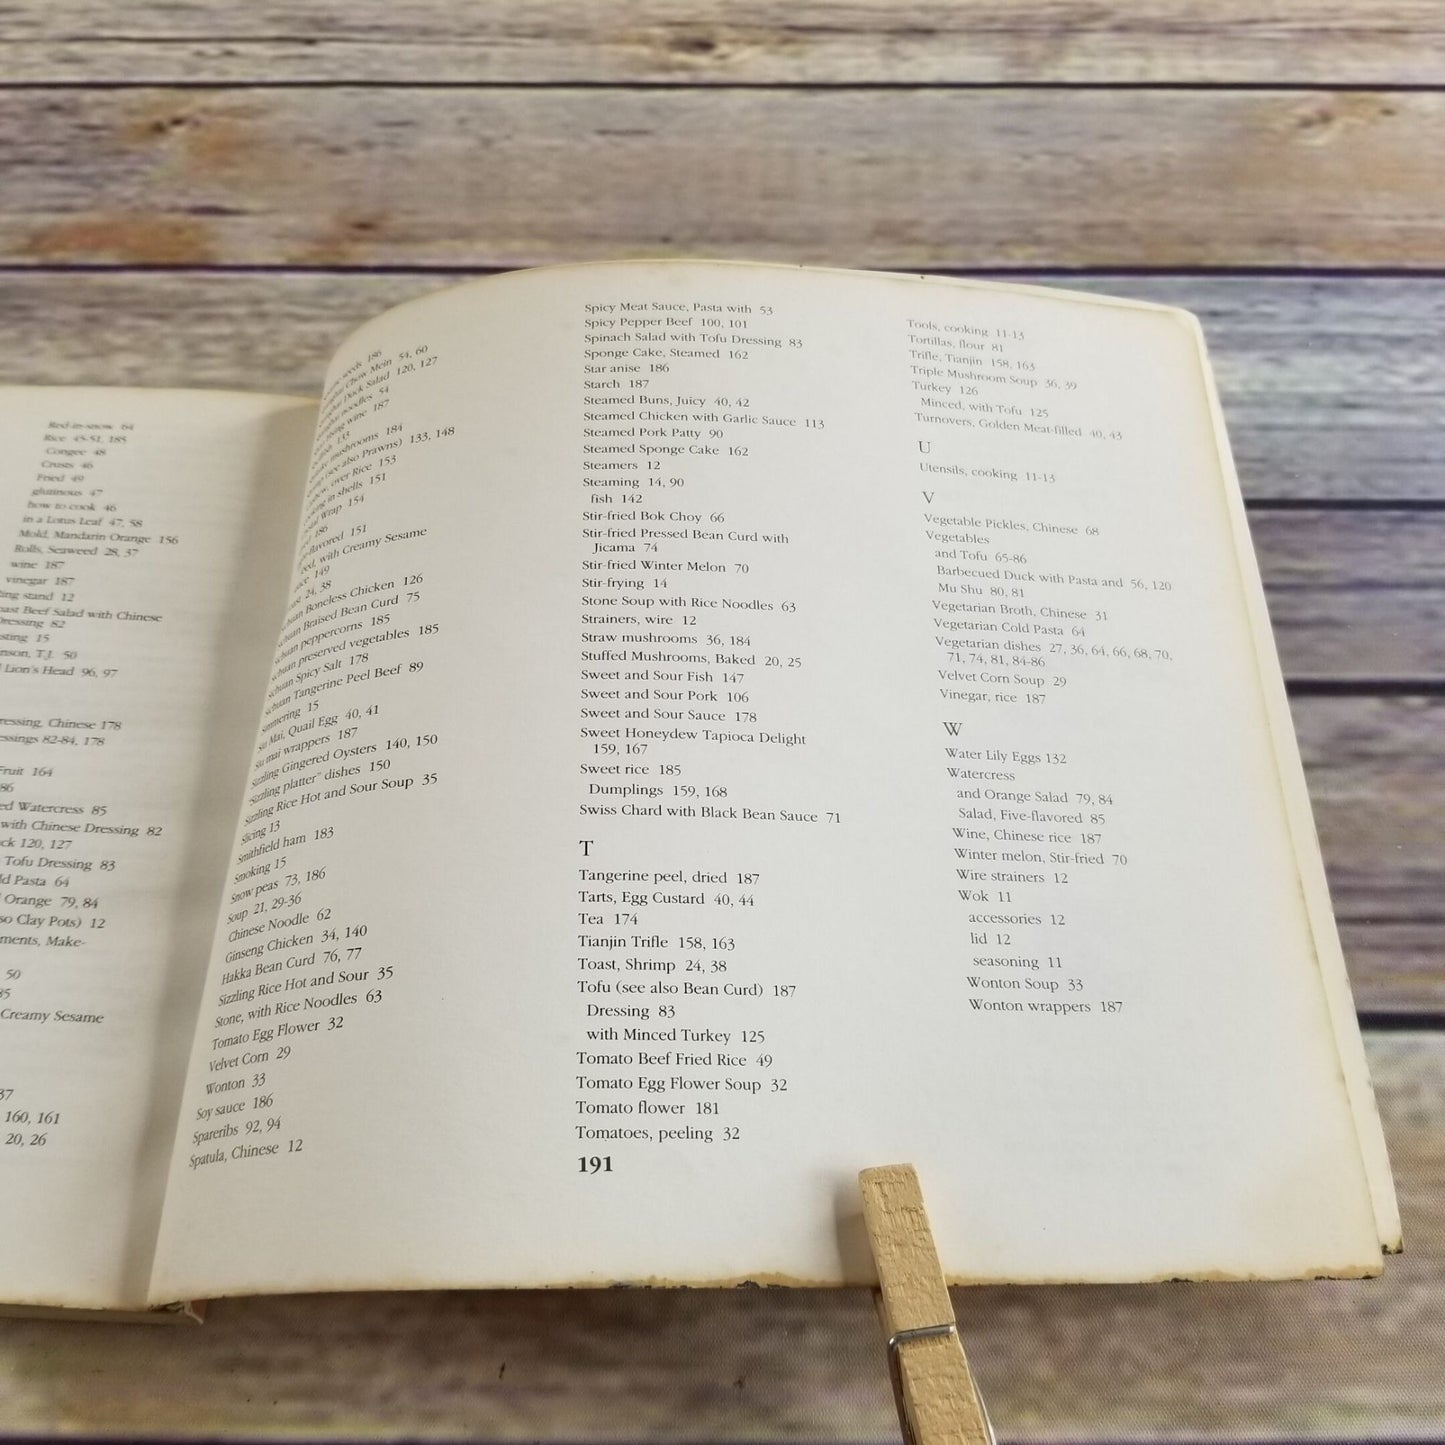 Red-in-snow 64
Rice 45-51, 185
Congee 48
Crusts 46
Fried 49
glutinous 47
how to cook 46
in a Lotus Leaf 47, 58
Mold, Mandarin Orange 156
Rolls, Seaweed 28, 37
wine 187
vinegar 187
stand 12
Beef Salad with Chinese
82
15
T.J. 50
Lion's Head 96, 97
Chinese 178
82-84, 178
Fruit 164
86
Watercress 85
with Chinese Dressing 82
120, 127
Tofu Dressing 83
Pasta 64
Orange 79, 84
Clay Pots) 12
Make-
50
85
Creamy Sesame
37
160, 161
20, 26
seeds 186
Chow Mein 54, 60
Duck Salad 120, 127
noodles 54
wine 187
133
mushrooms 184
(see also Prawns) 133, 148
over Rice 153
in shells 151
Wrap 154
186
151
with Creamy Sesame
149
24, 38
Boneless Chicken 126
Braised Bean Curd 75
peppercorns 185
preserved vegetables 185
Spicy Salt 178
Tangerine Peel Beef 89
Simmering 15
Siu Mai, Quail Egg 40, 41
Siu mai wrappers 187
Sizzling Gingered Oysters 140, 150
"Sizzling platter" dishes 150
Sizzling Rice Hot and Sour Soup 35
Slicing 13
Smithfield ham 183
Smoking 15
Snow peas 73, 186
Soup 21, 29-36
Chinese Noodle 62
Ginseng Chicken 34, 140
Hakka Bean Curd 76, 77
Sizzling Rice Hot and Sour 35
Stone, with Rice Noodles 63
Tomato Egg Flower 32
Velvet Corn 29
Wonton 33
Soy sauce 186
Spareribs 92, 94
Spatula, Chinese 12
Spicy Meat Sauce, Pasta with 53
Spicy Pepper Beef 100, 101
Spinach Salad with Tofu Dressing 83
Sponge Cake, Steamed 162
Star anise 186
Starch 187
Steamed Buns, Juicy 40, 42
Steamed Chicken with Garlic Sauce 113
Steamed Pork Patty 90
Steamed Sponge Cake 162
Steamers 12
Steaming 14, 90
fish 142
Stir-fried Bok Choy 66
Stir-fried Pressed Bean Curd with
Jicama 74
Stir-fried Winter Melon 70
Stir-frying 14
Stone Soup with Rice Noodles 63
Strainers, wire 12
Straw mushrooms 36, 184
Stuffed Mushrooms, Baked 20, 25
Sweet and Sour Fish 147
Sweet and Sour Pork 106
Sweet and Sour Sauce 178
Sweet Honeydew Tapioca Delight
159, 167
Sweet rice 185
Dumplings 159, 168
Swiss Chard with Black Bean Sauce 71
T
Tangerine peel, dried 187
Tarts, Egg Custard 40, 44
Tea 174
Tianjin Trifle 158, 163
Toast, Shrimp 24, 38
Tofu (see also Bean Curd) 187
Dressing 83
with Minced Turkey 125
Tomato Beef Fried Rice 49
Tomato Egg Flower Soup 32
Tomato flower 181
Tomatoes, peeling 32
191
Tools, cooking 11-13
Tortillas, flour 81
Trifle, Tianjin 158, 163
Triple Mushroom Soup 36, 39
Turkey 126
Minced, with Tofu 125
Turnovers, Golden Meat-filled 40, 43
U
Utensils, cooking 11-13
V
Vegetable Pickles, Chinese 68
Vegetables
and Tofu 65-86
Barbecued Duck with Pasta and 56, 120
Mu Shu 80, 81
Vegetarian Broth, Chinese 31
Vegetarian Cold Pasta 64
Vegetarian dishes 27, 36, 64, 66, 68, 70,
71, 74, 81, 84-86
Velvet Corn Soup 29
Vinegar, rice 187
W
Water Lily Eggs 132
Watercress
and Orange Salad 79, 84
Salad, Five-flavored 85
Wine, Chinese rice 187
Winter melon, Stir-fried 70
Wire strainers 12
Wok 11
accessories 12
lid 12
seasoning 11
Wonton Soup 33
Wonton wrappers 187